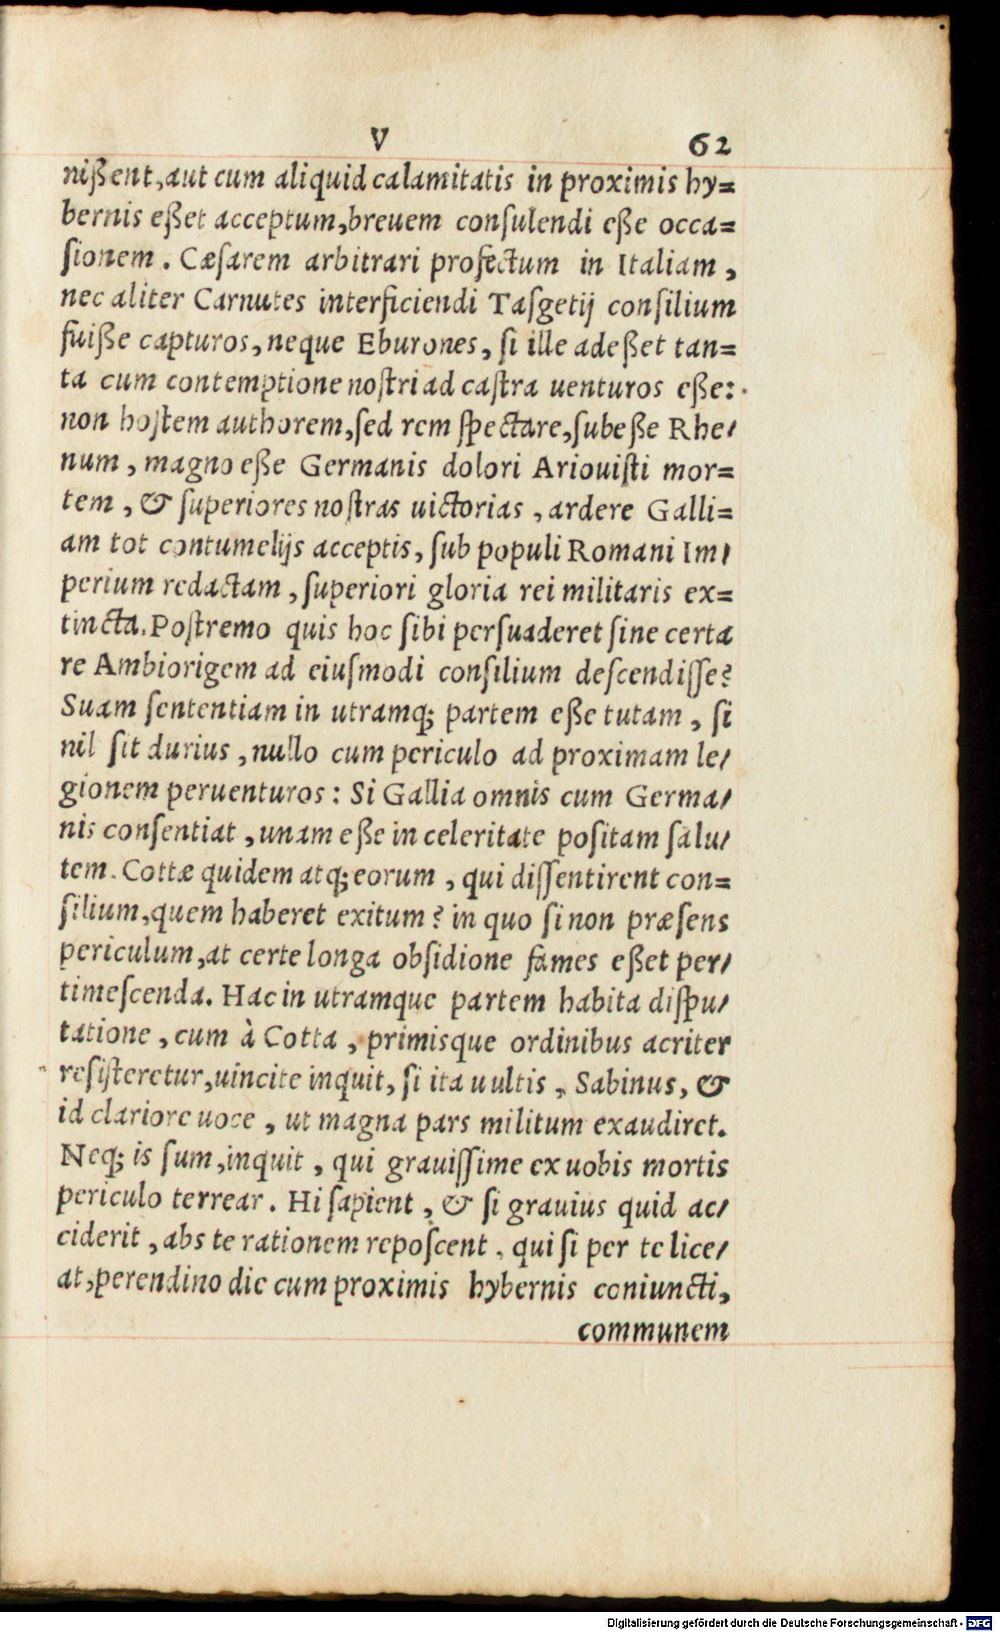 V 62
nißent, aut cum aliquid calamitatis in proximis hy=
bernis eßet acceptum, breuem conſulendi eße occa=
ſionem. Cæſarem arbitrari profectum in Italiam,
nec aliter Carnutes interficiendi Taſgetij conſilium
fuiße capturos, neque Eburones, ſi ille adeßet tan=
ta cum contemptione noſtri ad caſtra uenturos eße:
non hoſtem authorem, ſed rem ſpectare, ſubeße Rhe/
num, magno eße Germanis dolori Ariouiſti mor=
tem, & ſuperiores noſtras uictorias, ardere Galli=
am tot contumelijs acceptis, ſub populi Romani Im/
perium redactam, ſuperiori gloria rei militaris ex=
tincta. Poſtremo quis hoc ſibi perſuaderet ſine certa
re Ambiorigem ad eiuſmodi conſilium deſcendiſſe?
Suam ſententiam in utramq; partem eße tutam, ſi
nil ſit durius, nullo cum periculo ad proximam le/
gionem peruenturos: Si Gallia omnis cum Germa/
nis conſentiat, unam eße in celeritate poſitam ſalu/
tem. Cottæ quidem atq; eorum, qui diſſentirent con=
ſilium, quem haberet exitum? in quo ſi non præſens
periculum, at certe longa obſidione fames eßet per/
timeſcenda. Hac in utramque partem habita diſpu/
tatione, cum à Cotta, primisque ordinibus acriter
reſiſteretur, uincite inquit, ſi ita uultis, Sabinus, &
id clariore uoce, ut magna pars militum exaudiret.
Neq; is ſum, inquit, qui grauiſſime ex uobis mortis
periculo terrear. Hi ſapient, & ſi grauius quid ac/
ciderit, abs te rationem repoſcent, qui ſi per te lice/
at, perendino die cum proximis hybernis coniuncti,
communem
Digitalisierung gefördert durch die Deutsche Forschungsgemeinschaft - DFG